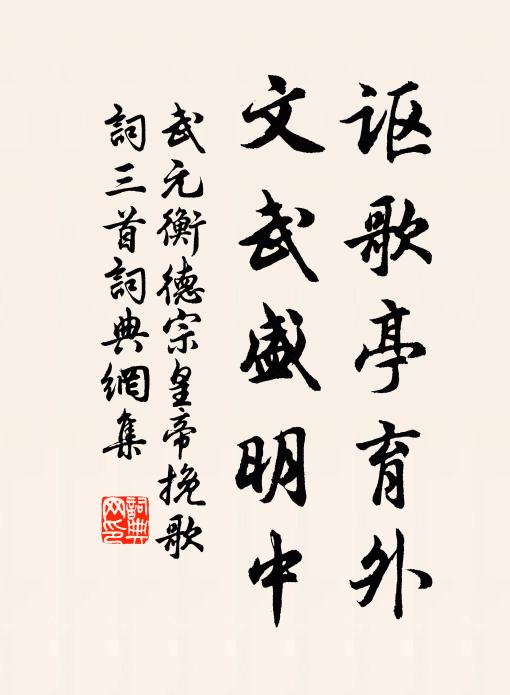 讴歌亭育外
文武盛明中
武元衡德宗皇帝挽歌
詞三首詞典網集
詞典网印